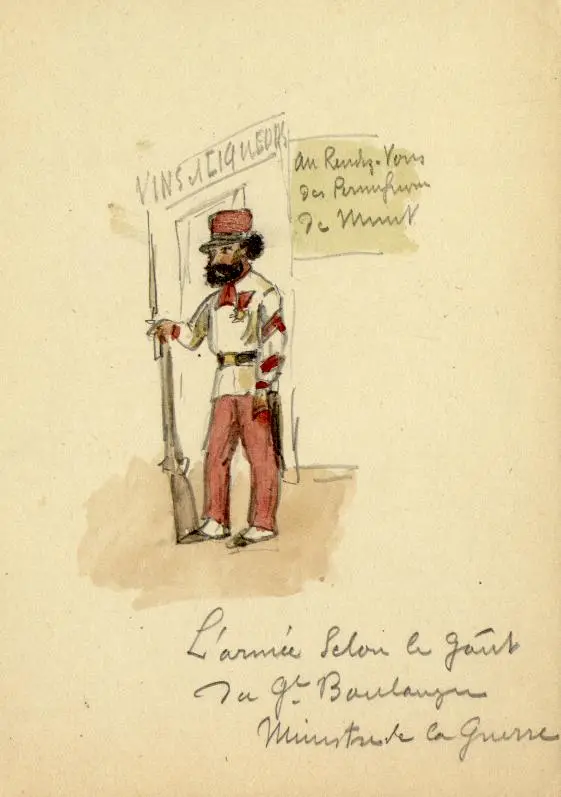 VINS et LIQUEURS
Au Rendez-Vous
des Permissions
de Minuit
L'armée selon le goût
du Gl Boulanger
Ministre de la Guerre